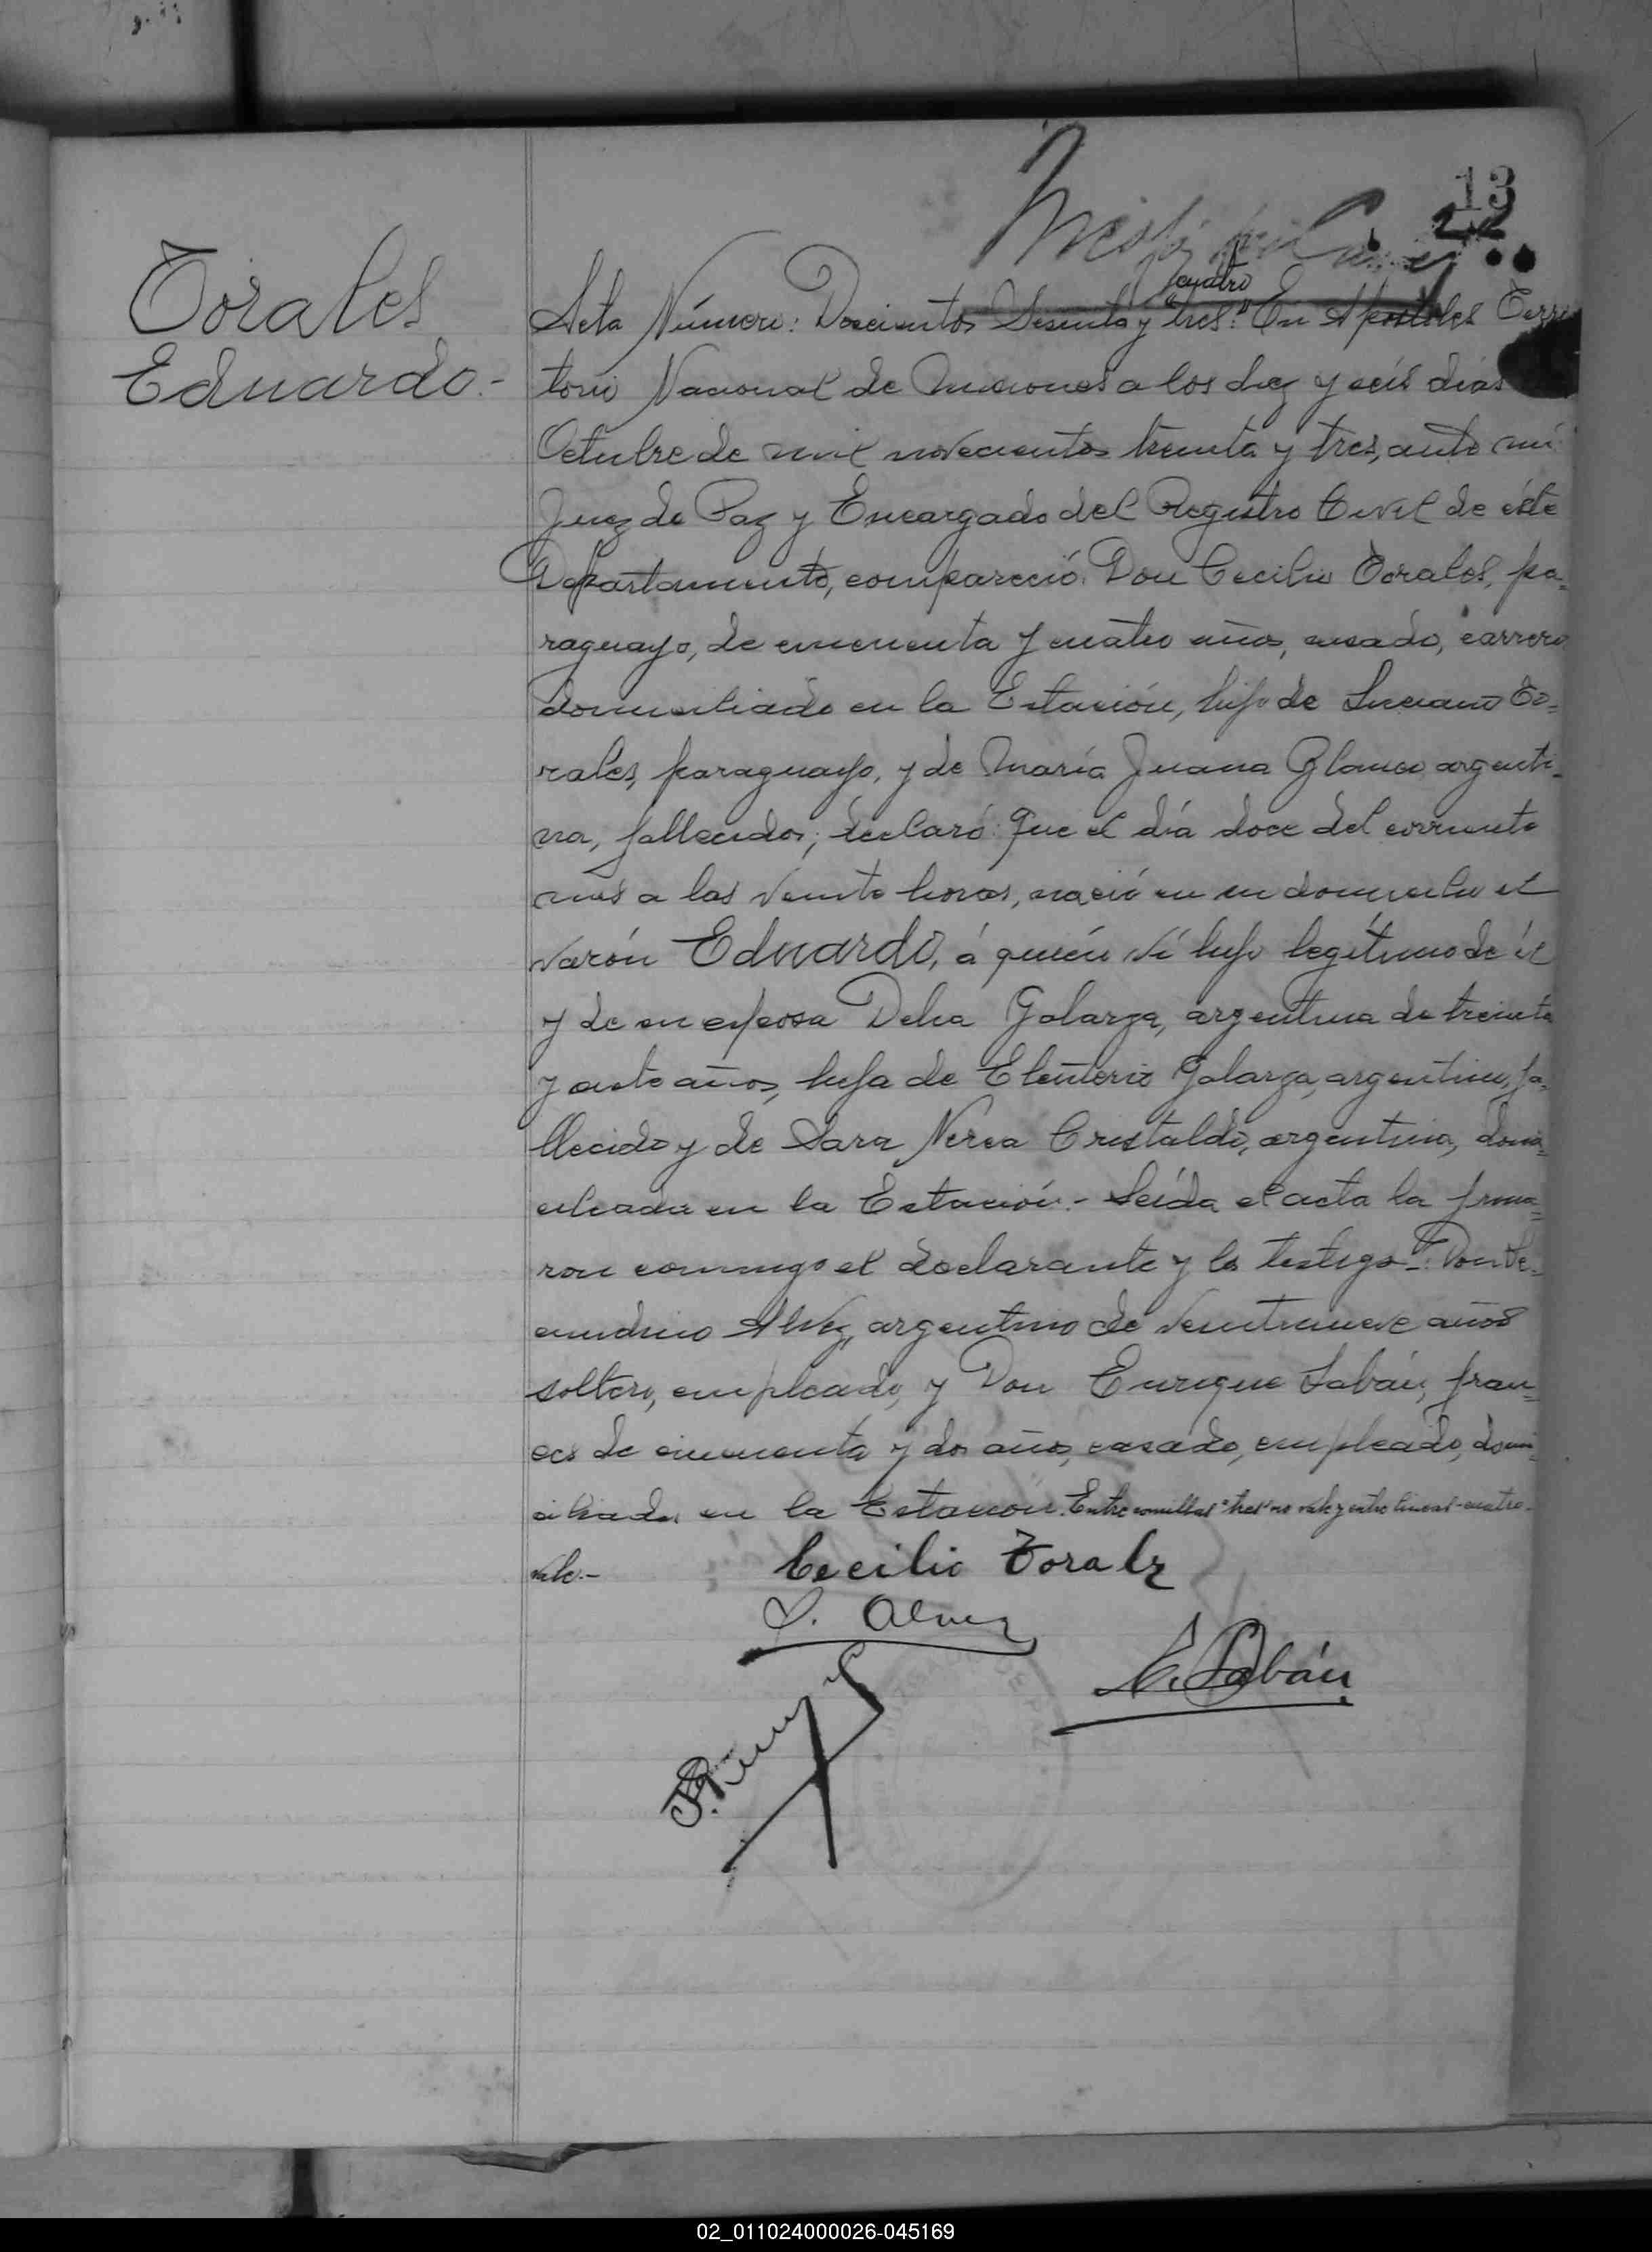 13
Torales
Eduardo.-
cuatro
Acta Número: Doscientos Sesenta y "tres." En Apóstoles Terri
torio Nacional de Misiones a los diez y seis días
Octubre de mil novecientos treinta y tres, ante mí
Juez de Paz y Encargado del Registro Civil de éste
Departamento, compareció: Don Cecilio Torales, pa=
raguayo, de cincuenta y cuatro años, casado, carrero
domiciliado en la Estación, hijo de Luciano To=
rales, paraguayo, y de María Juana Blanco, argenti=
na, fallecidos; declaró: Que el día doce del corriente
mes a las veinte horas, nació en su domicilio el
varón Eduardo, á quién ví hijo legítimo de él
y de su esposa Delia Galarza, argentina de treinta
y años, hija de Eleuterio Galarza, argentino, fa=
llecido y de Sara Nerea Cristaldo, argentina, domi=
ciliada en la Estación.- Leída el acta la firma=
ron conmigo el declarante y los testigos: Don
Alvez, argentino de veintinueve años
soltero, empleado, y Don Enrique Labán, fran=
ces de cincuenta y dos años, casado, empleado, domi=
ciliados en la Estación. Entre comillas "tres" no vale y entre lineas-cuatro-
vale.-
Cecilio Toralz
S. Alvez
E. Labán
02_011024000026-045169